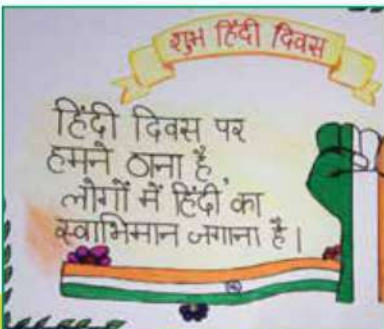 शुभ हिंदी दिवस
हिंदी दिवस पर
हमने ठाना है,
लोगों में हिंदी का
स्वाभिमान जगाना है।